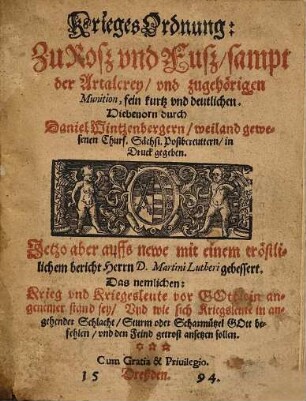 Krieges Ordnung:
Zu Rosz vnd Fusz / sampt
der Artalerey / vnd zugehörigen
Munition, fein kurtz vnd deutlichen.
Diebenorn durch
Daniel Wintzenbergern / weiland gewe-
senen Churf. Sächs. Postbereuttern / in
Druck gegeben.
Jetzo aber auffs newe mit einem tröstli-
lichem bericht Herrn D. Martini Lutheri gebessert.
Das nemlichen:
Krieg vnd Kriegesleute vor GOtt ein an-
genemer stand sey / Vnd wie sich Kriegsleute in an-
gehender Schlacht / Sturm oder Scharmützel GOtt be-
fehlen / vnd den Feind getrost ansetzen sollen.
Cum Gratia & Priuilegio.
Dreßden.
15 94.